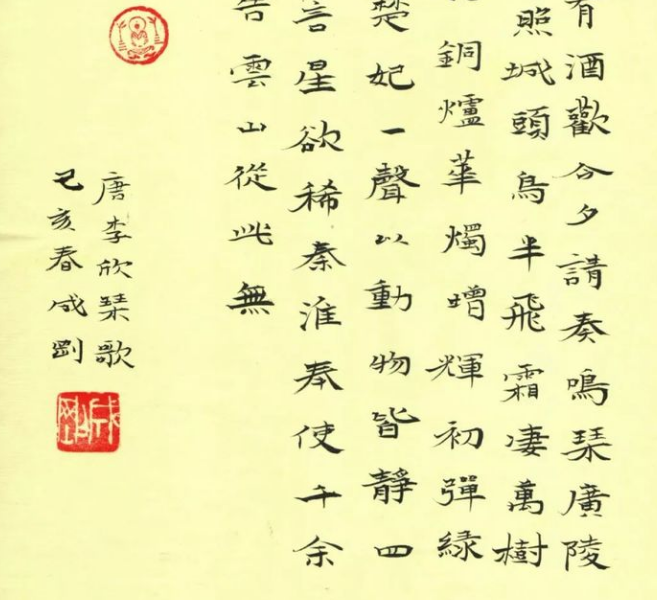 有酒歡今夕請奏鳴琹廣陵
照城頭鳥半飛霜凄萬樹
銅爐華燭增輝初彈緑
楚妃一聲以動物皆靜四
言星欲稀秦淮奉使千余
告雲山從此無
唐李欣琹歌
己亥春成剛